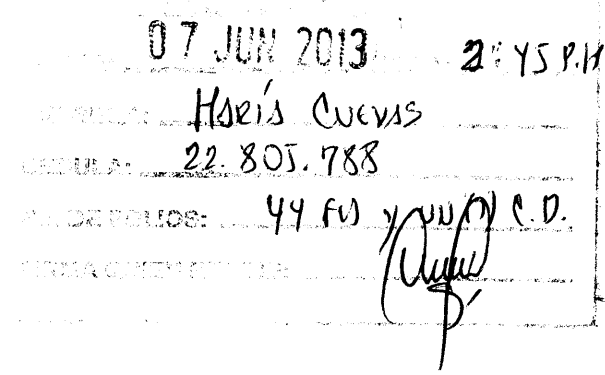 07 JUN 2013 2:45 P.M
María Cuevas
CEDULA: 22.805.788
FOLIOS: 44 Fls y un C.D.